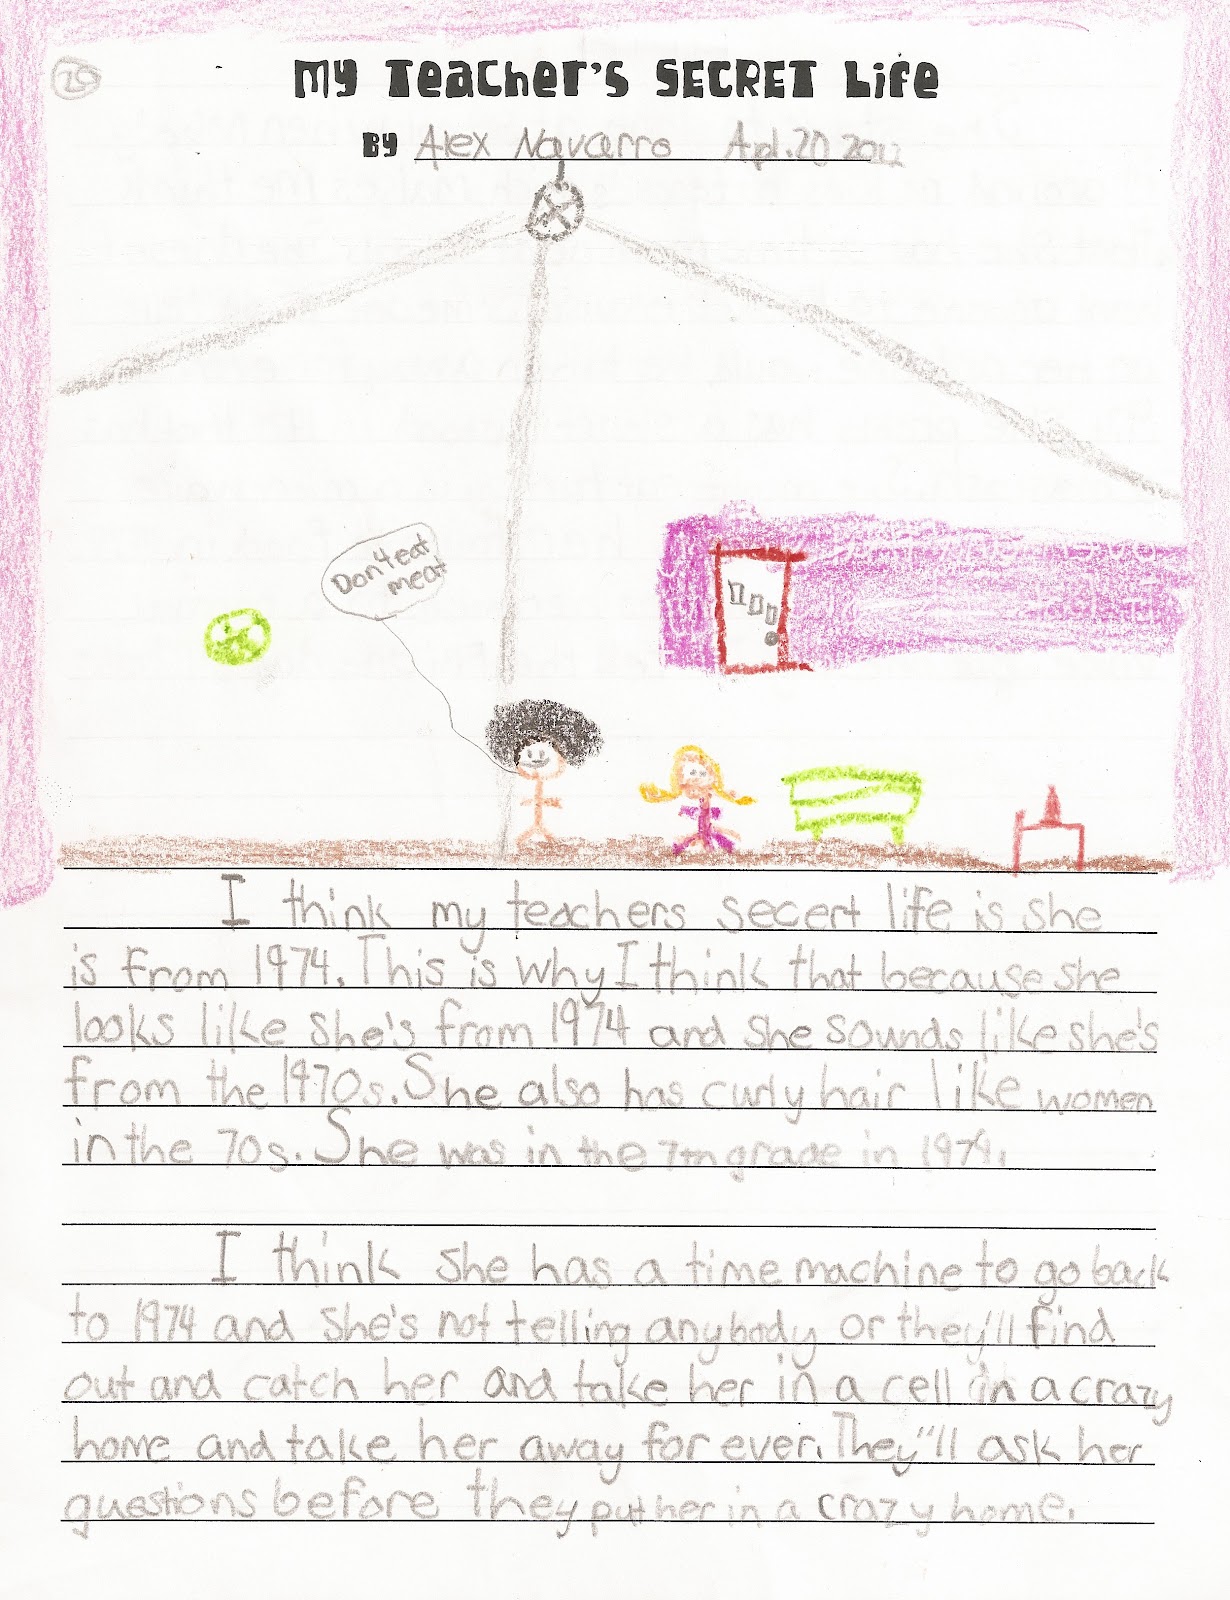 20
My Teacher's SECRET Life
BY Alex Navarro Apl. 20 2012
Don't eat
meat
I think my teachers secert life is she
is from 1974. This is why I think that because she
looks like she's from 1974 and she sounds like she's
from the 1970s. She also has curly hair like women
in the 70s. She was in the 7th grade in 1974.
I think she has a time machine to go back
to 1974 and she's not telling anybody or they'll find
out and catch her and take her in a cell in a crazy
home and take her away for ever. They"ll ask her
questions before they put her in a crazy home.